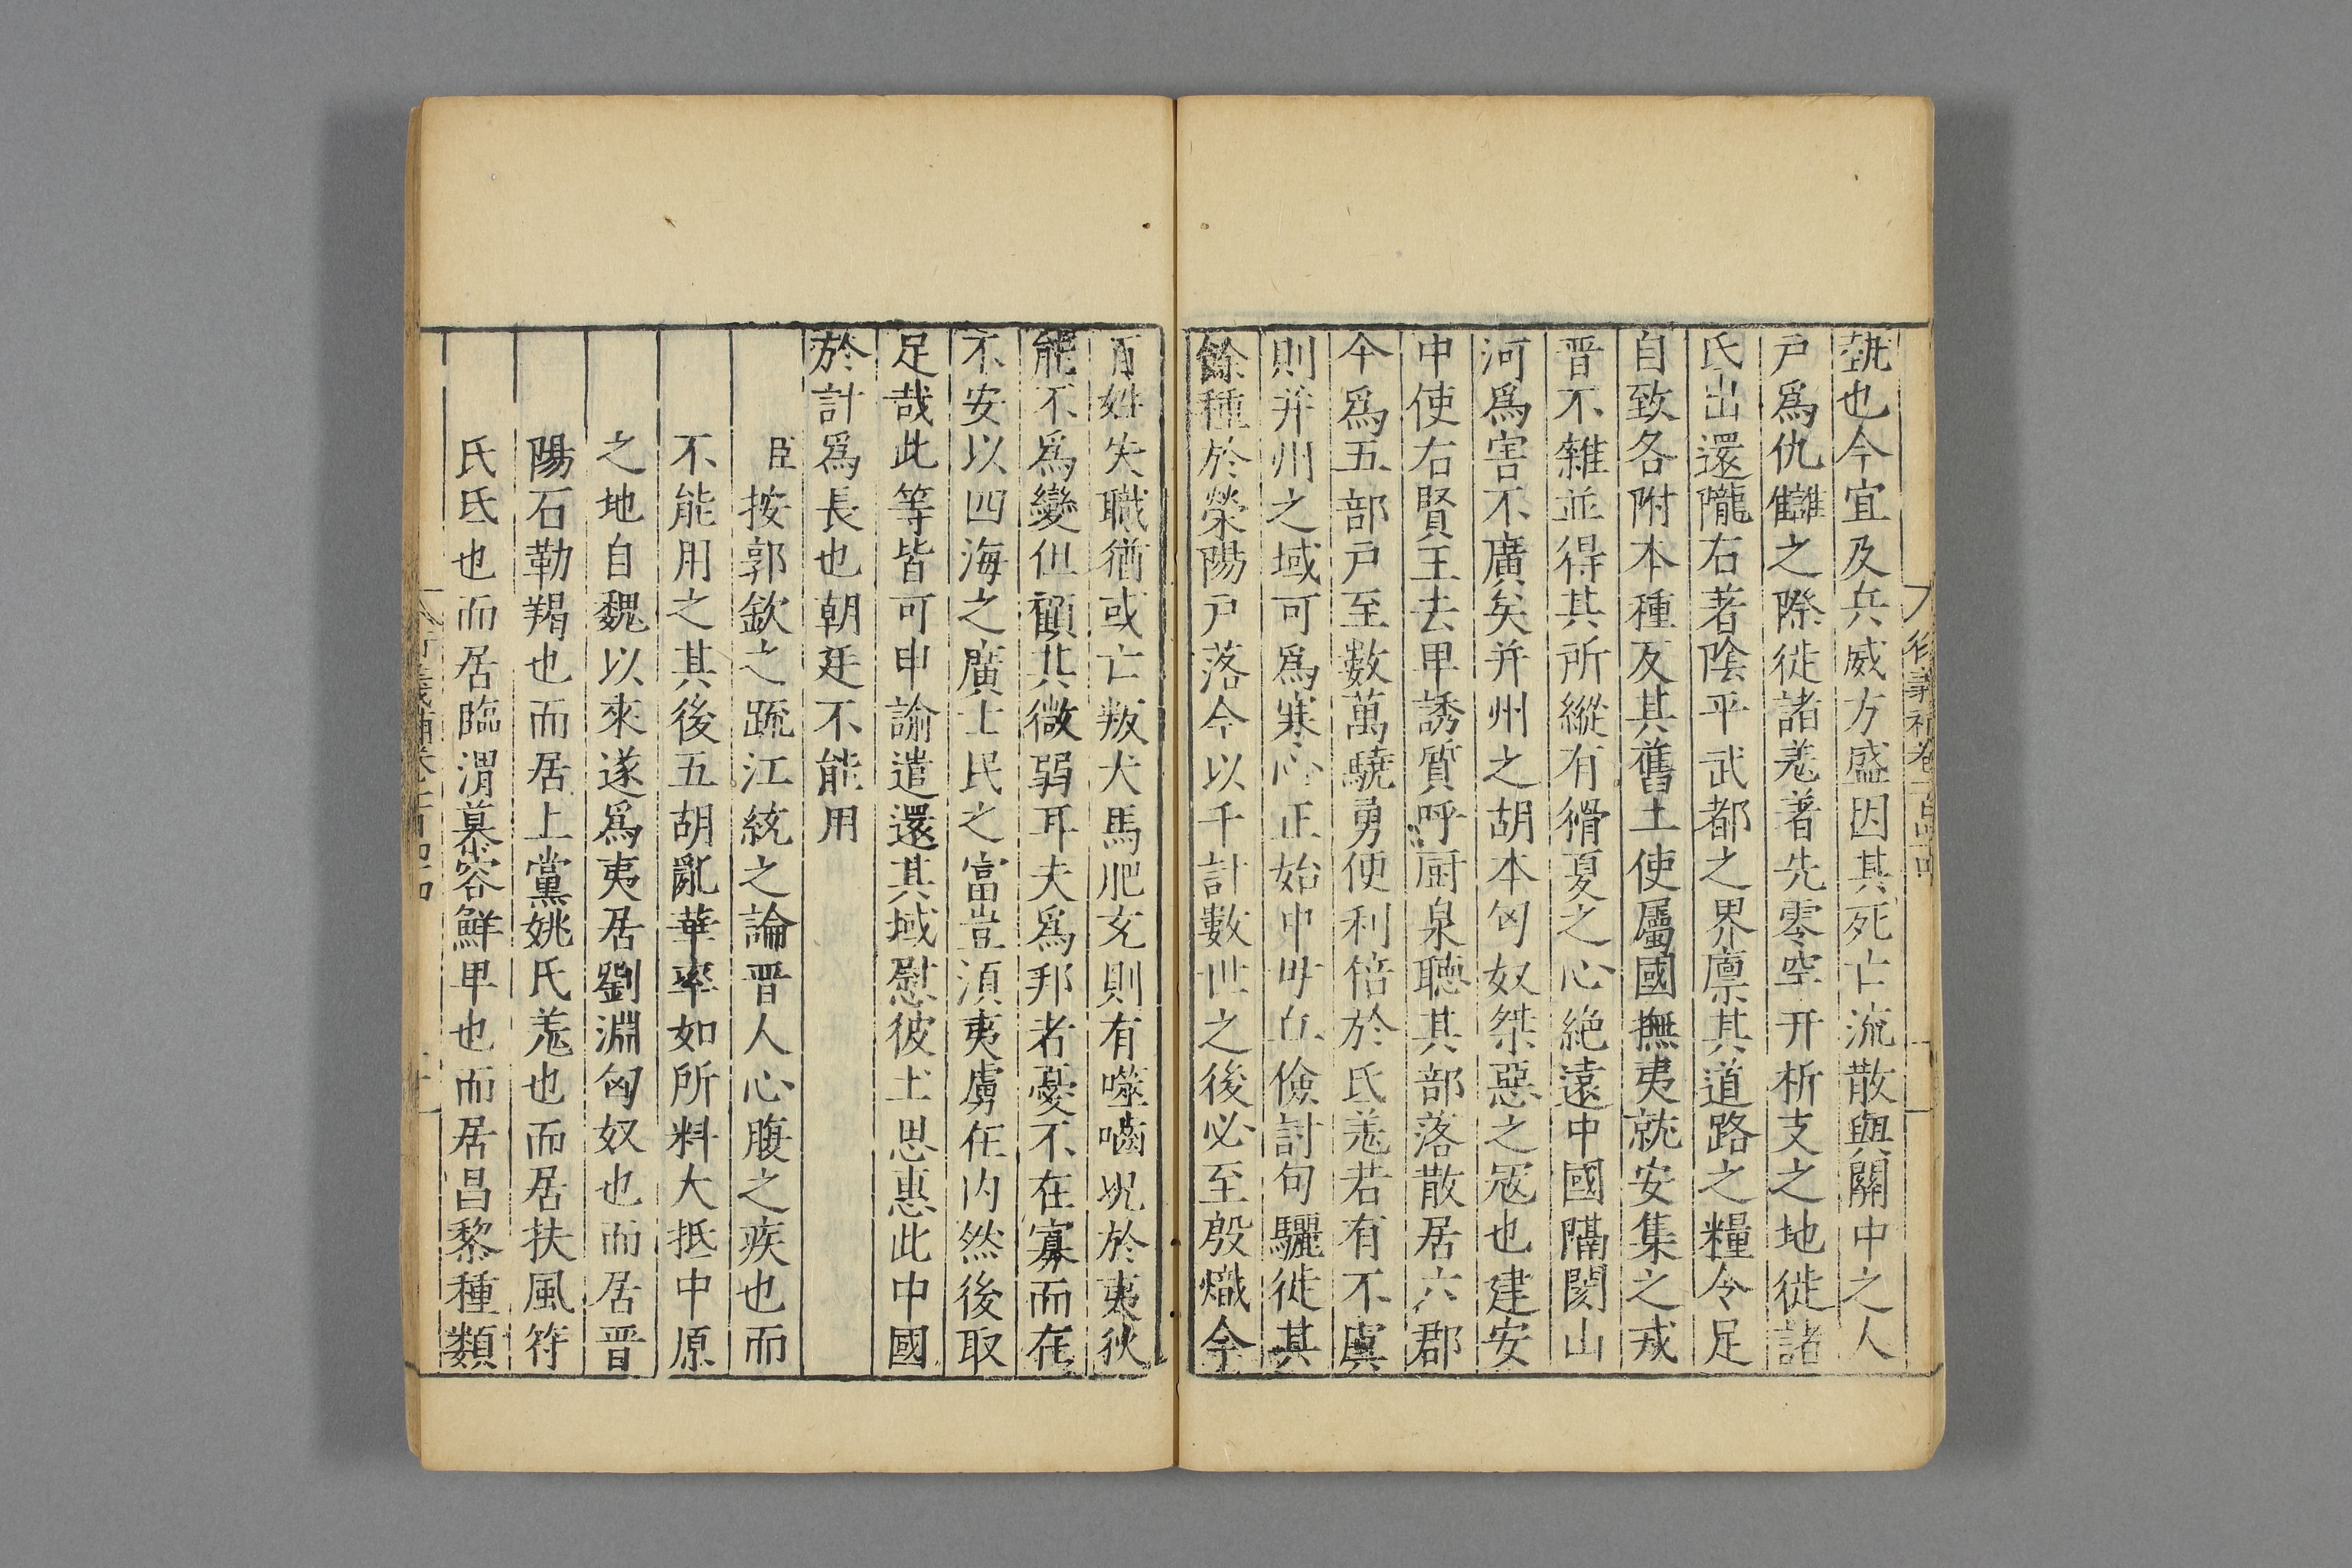 埶也今宜及兵威方盛因其死亡流散與關中之人
戸爲仇讎之際徙諸羗著先零罕幵析支之地徙諸
氐出還隴右著隂平武都之界廪其道路之糧令足
自致各附本種反其舊土使屬國撫夷就安集之戎
晉不雜並得其所縱有猾夏之心絶遠中國隔閡山
河爲害不廣矣并州之胡本匈奴桀惡之冦也建安
中使右賢王去卑誘質呼厨泉聽其部落散居六郡
今爲五部戸至數萬驍勇便利倍於氐羗若有不虞
則并州之域可爲寒心正始中毋丘儉討句驪徙其
餘種於滎陽戸落今以千計數世之後必至殷熾今
百姓失職猶或亡叛犬馬肥充則有噬嚙况於夷狄
能不爲變但顧其微弱耳夫爲邦者憂不在寡而在
不安以四海之廣士民之富豈湏夷虜在内然後取
足哉此等皆可申諭遣還其域慰彼土思惠此中國
於計爲長也朝廷不能用
臣按郭欽之䟽江統之論晉人心腹之疾也而
不能用之其後五胡亂華率如所料大抵中原
之地自魏以來遂爲夷居劉淵匈奴也而居晉
陽石勒羯也而居上黨姚氏羗也而居扶風符
氏氐也而居臨渭慕容鮮卑也而居昌黎種類